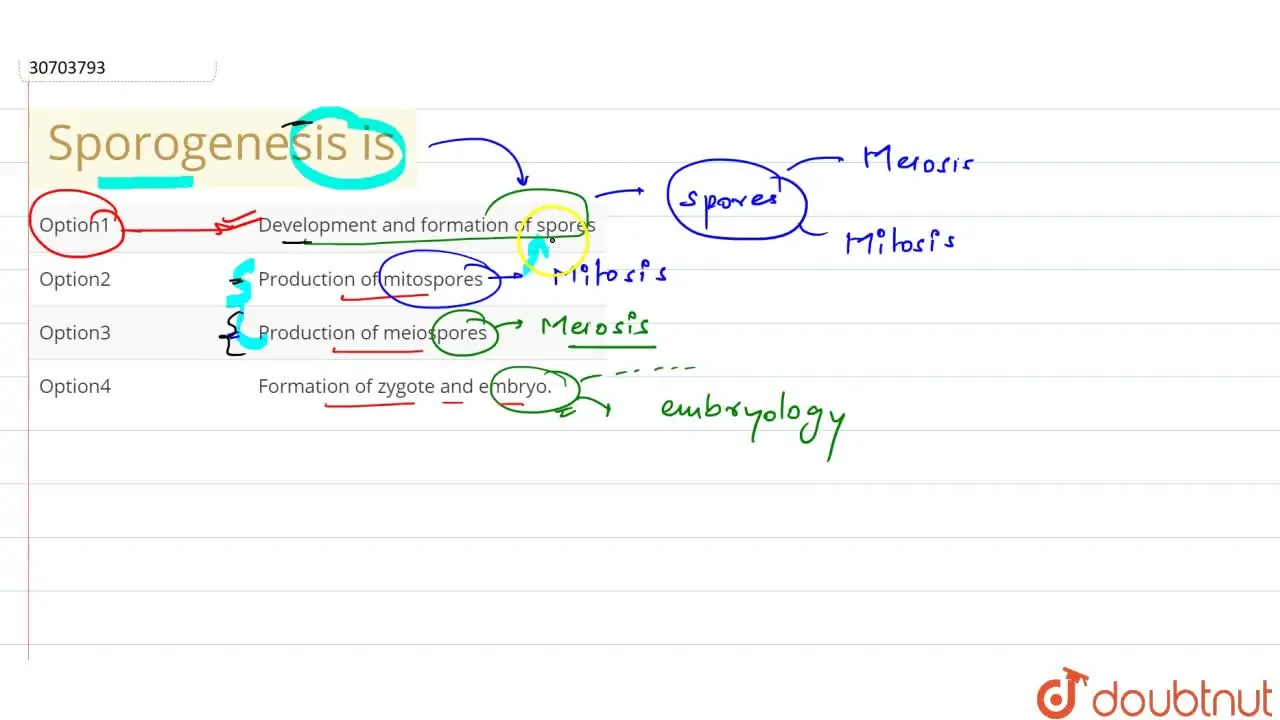 30703793
Sporogenesis is
Option1 Development and formation of spores
spores
Meiosis
Mitosis
Option2 Production of mitospores
Mitosis
Option3 Production of meiospores
Meiosis
Option4 Formation of zygote and embryo.
embryology
doubtnut